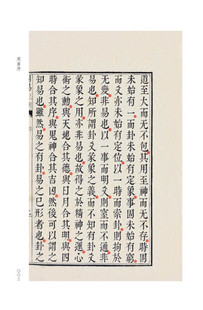 道至大而无不包其用至神而无不存時固
未始有一而卦未始有定象事固未始有窮
而爻亦未始有定位以一時而索卦則拘於
无變非易也以一事而明爻則窒而不通非
易也知所謂卦爻彖象之義而不知有卦爻
彖象之用亦非易也故得之於精神之運心
術之動與天地合其德與日月合其明與四
時合其序與鬼神合其吉凶然後可以謂之
知易也雖然易之有卦易之已形者也卦之
周易序